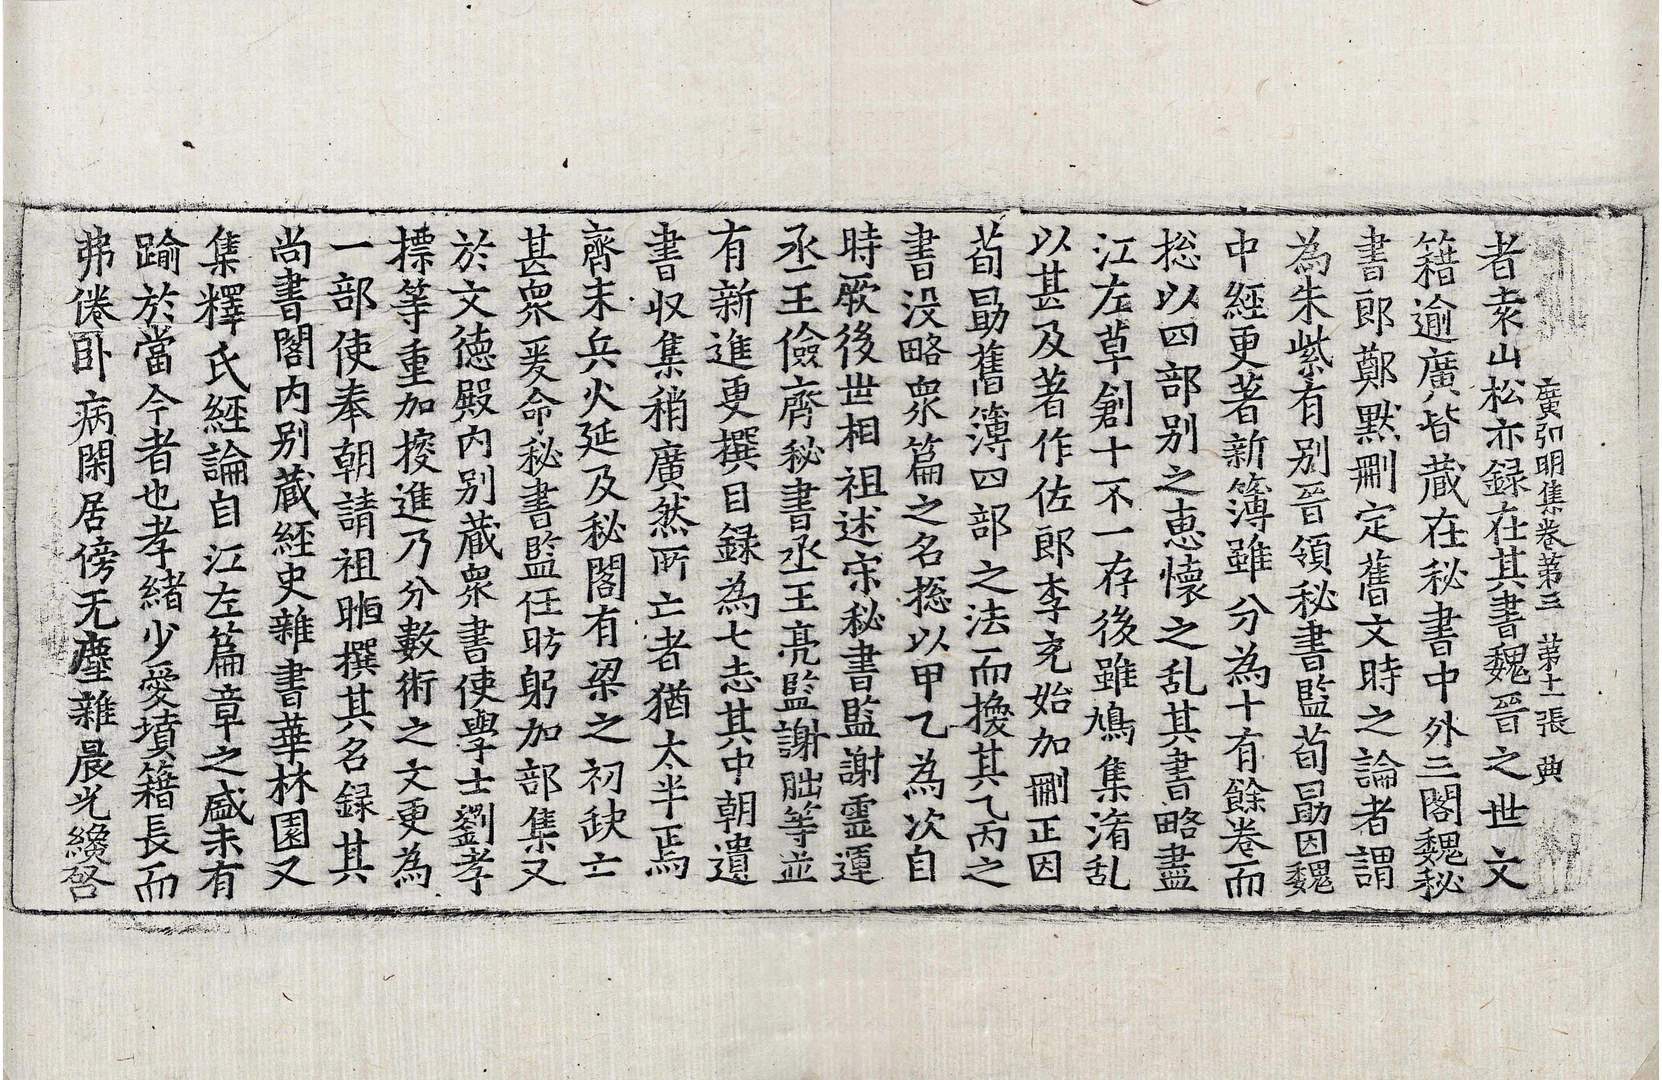 廣弘明集卷第三　第十一張　典
者袁山松亦録在其書魏晉之世文
籍逾廣皆蔵在秘書中外三閣魏秘
書郎鄭黙刪定舊文時之論者謂
為朱紫有别晉領秘書監荀勗因魏
中經更著新簿雖分為十有餘卷而
揔以四部别之恵懷之乱其書略盡
江左草創十不一存後雖鳩集淆乱
以甚及著作佐郎李充始加刪正因
荀勗舊簿四部之法而換其乙丙之
書没略衆篇之名揔以甲乙為次自
時厥後世相祖述宋秘書監謝靈運
丞王儉齊秘書丞王亮監謝朏等並
有新進更撰目録為七志其中朝遺
書収集稍廣然所亡者猶太半焉
齊末兵火延及秘閣有梁之初缺亡
甚衆爰命秘書監任昉躬加部集又
於文德殿内别蔵衆書使學士劉孝
標等重加挍進乃分數術之文更為
一部使奉朝請祖暅撰其名録其
尚書閣内别蔵經史雜書華林園又
集釋氏經論自江左篇章之盛未有
踰於當今者也孝緒少愛墳籍長而
弗倦卧病閑居傍无塵雜晨光纔啓